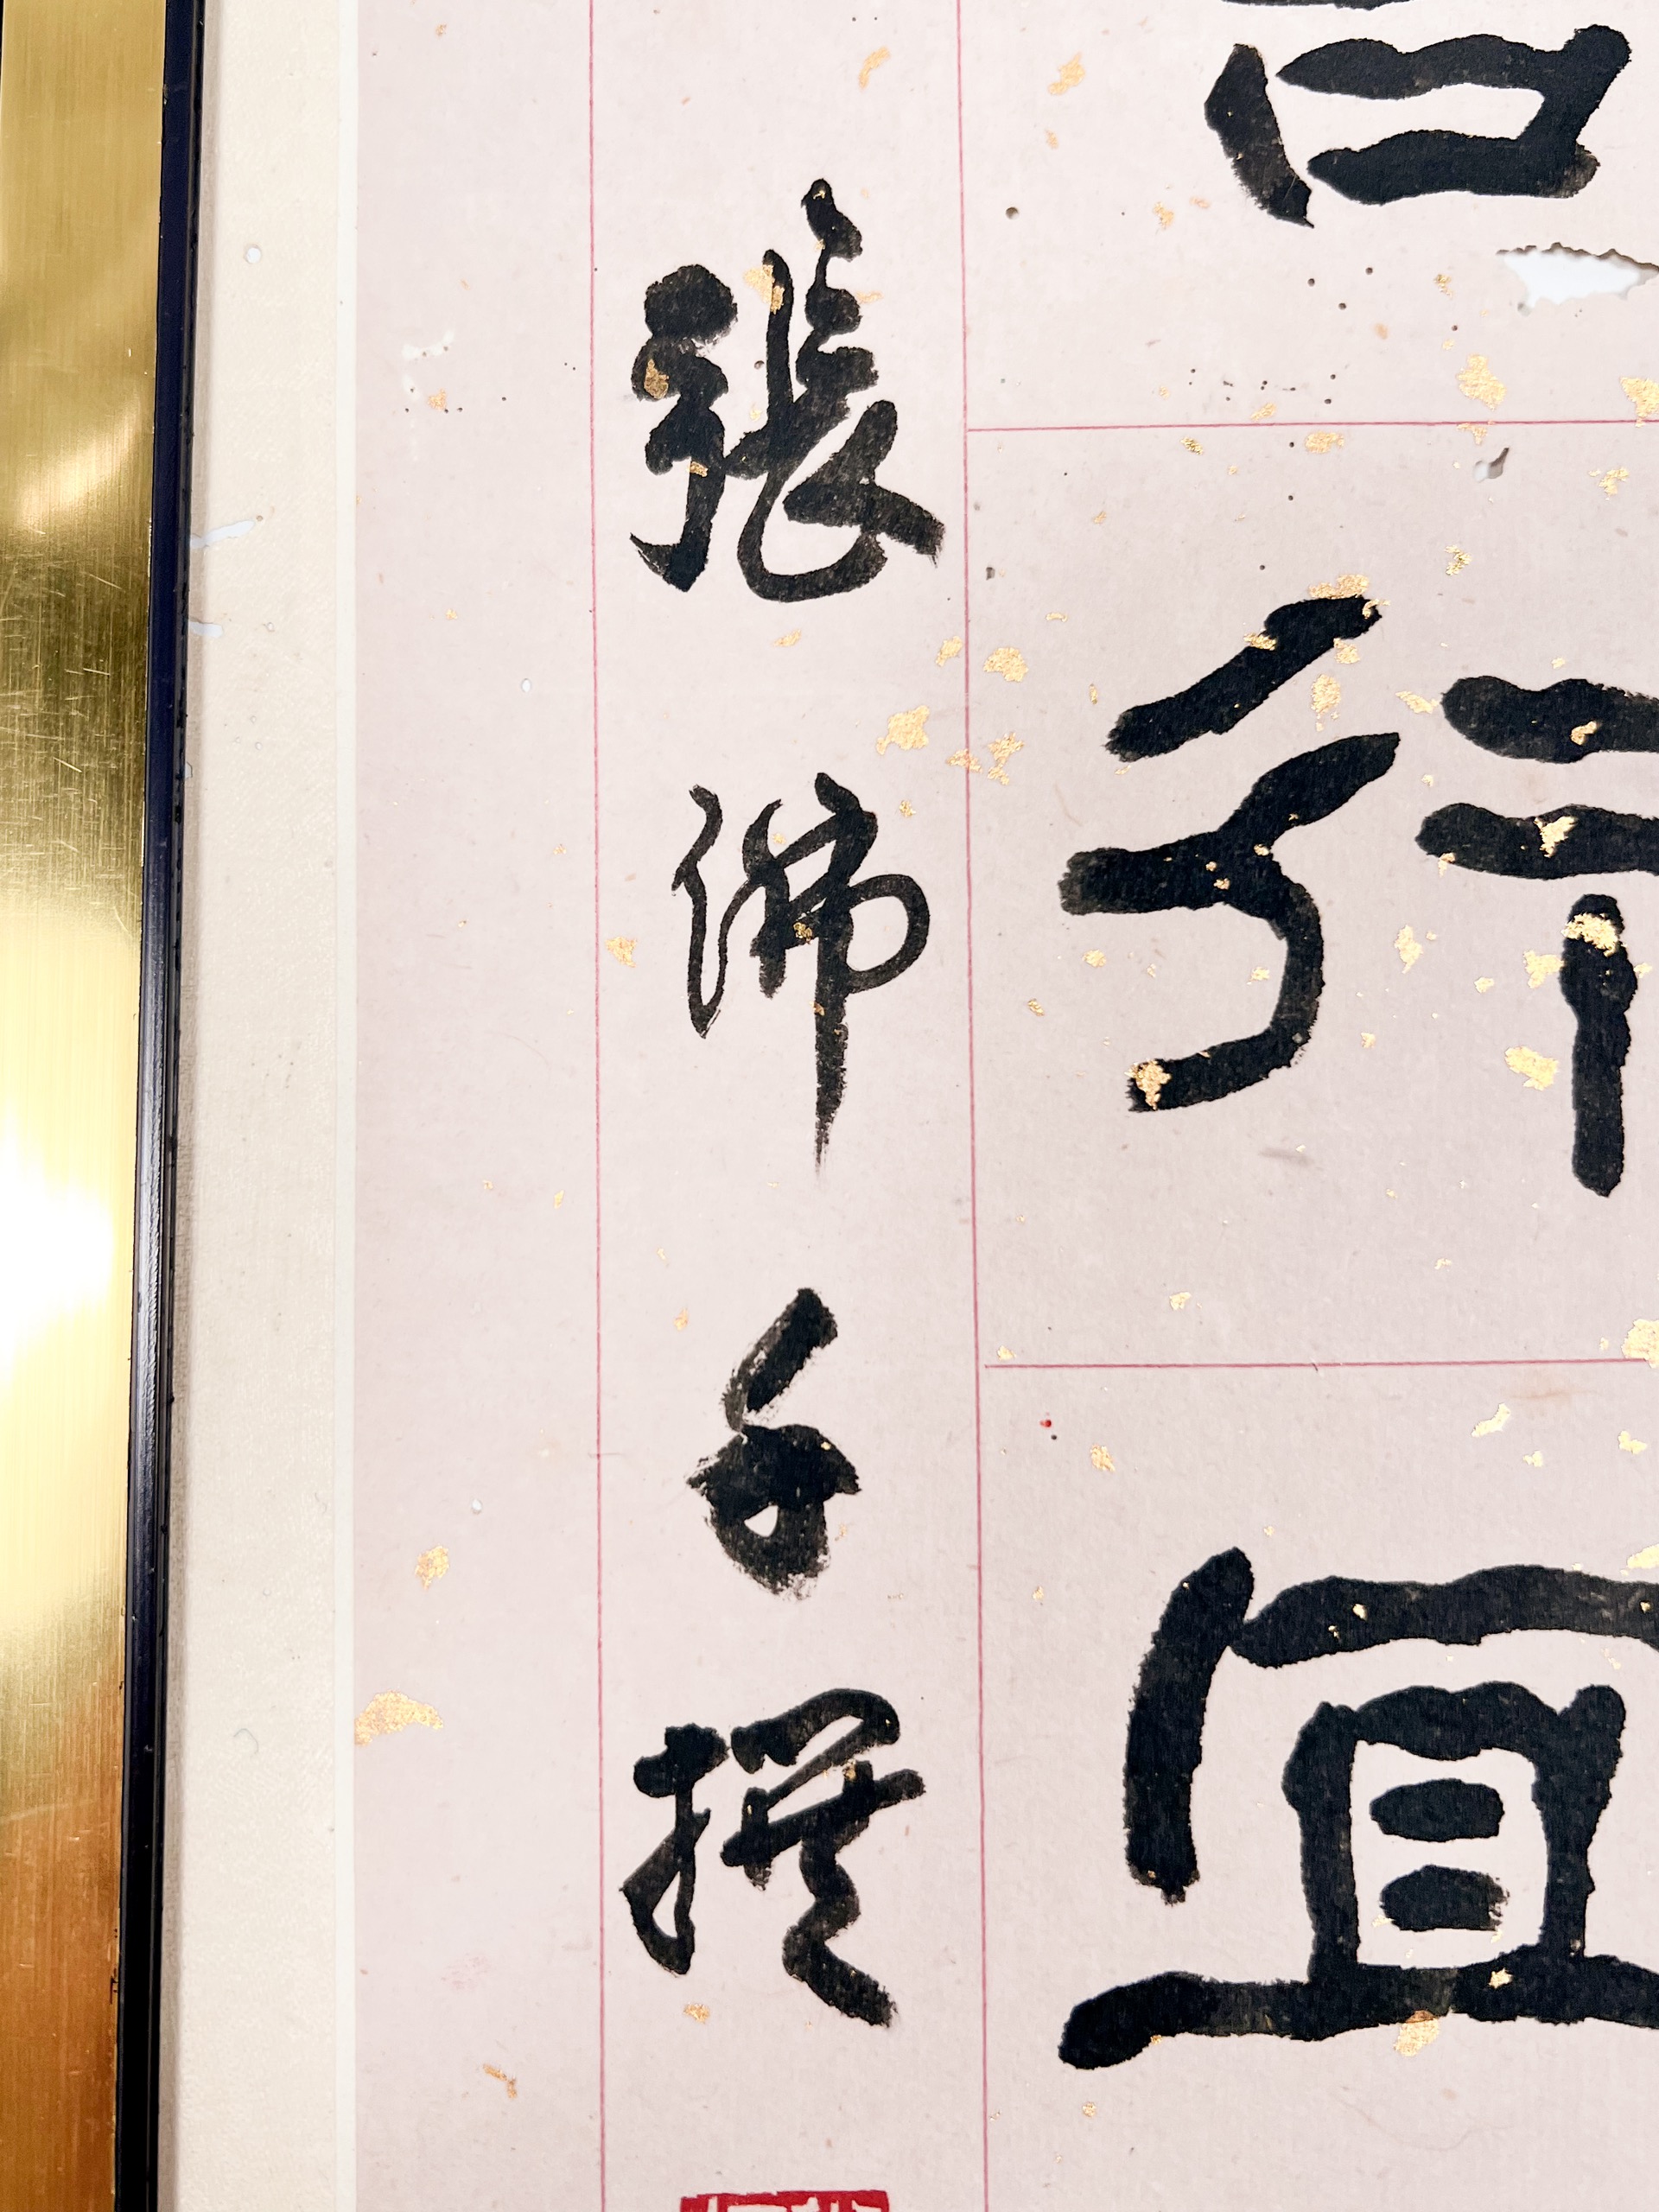 行宜
張佛千撰